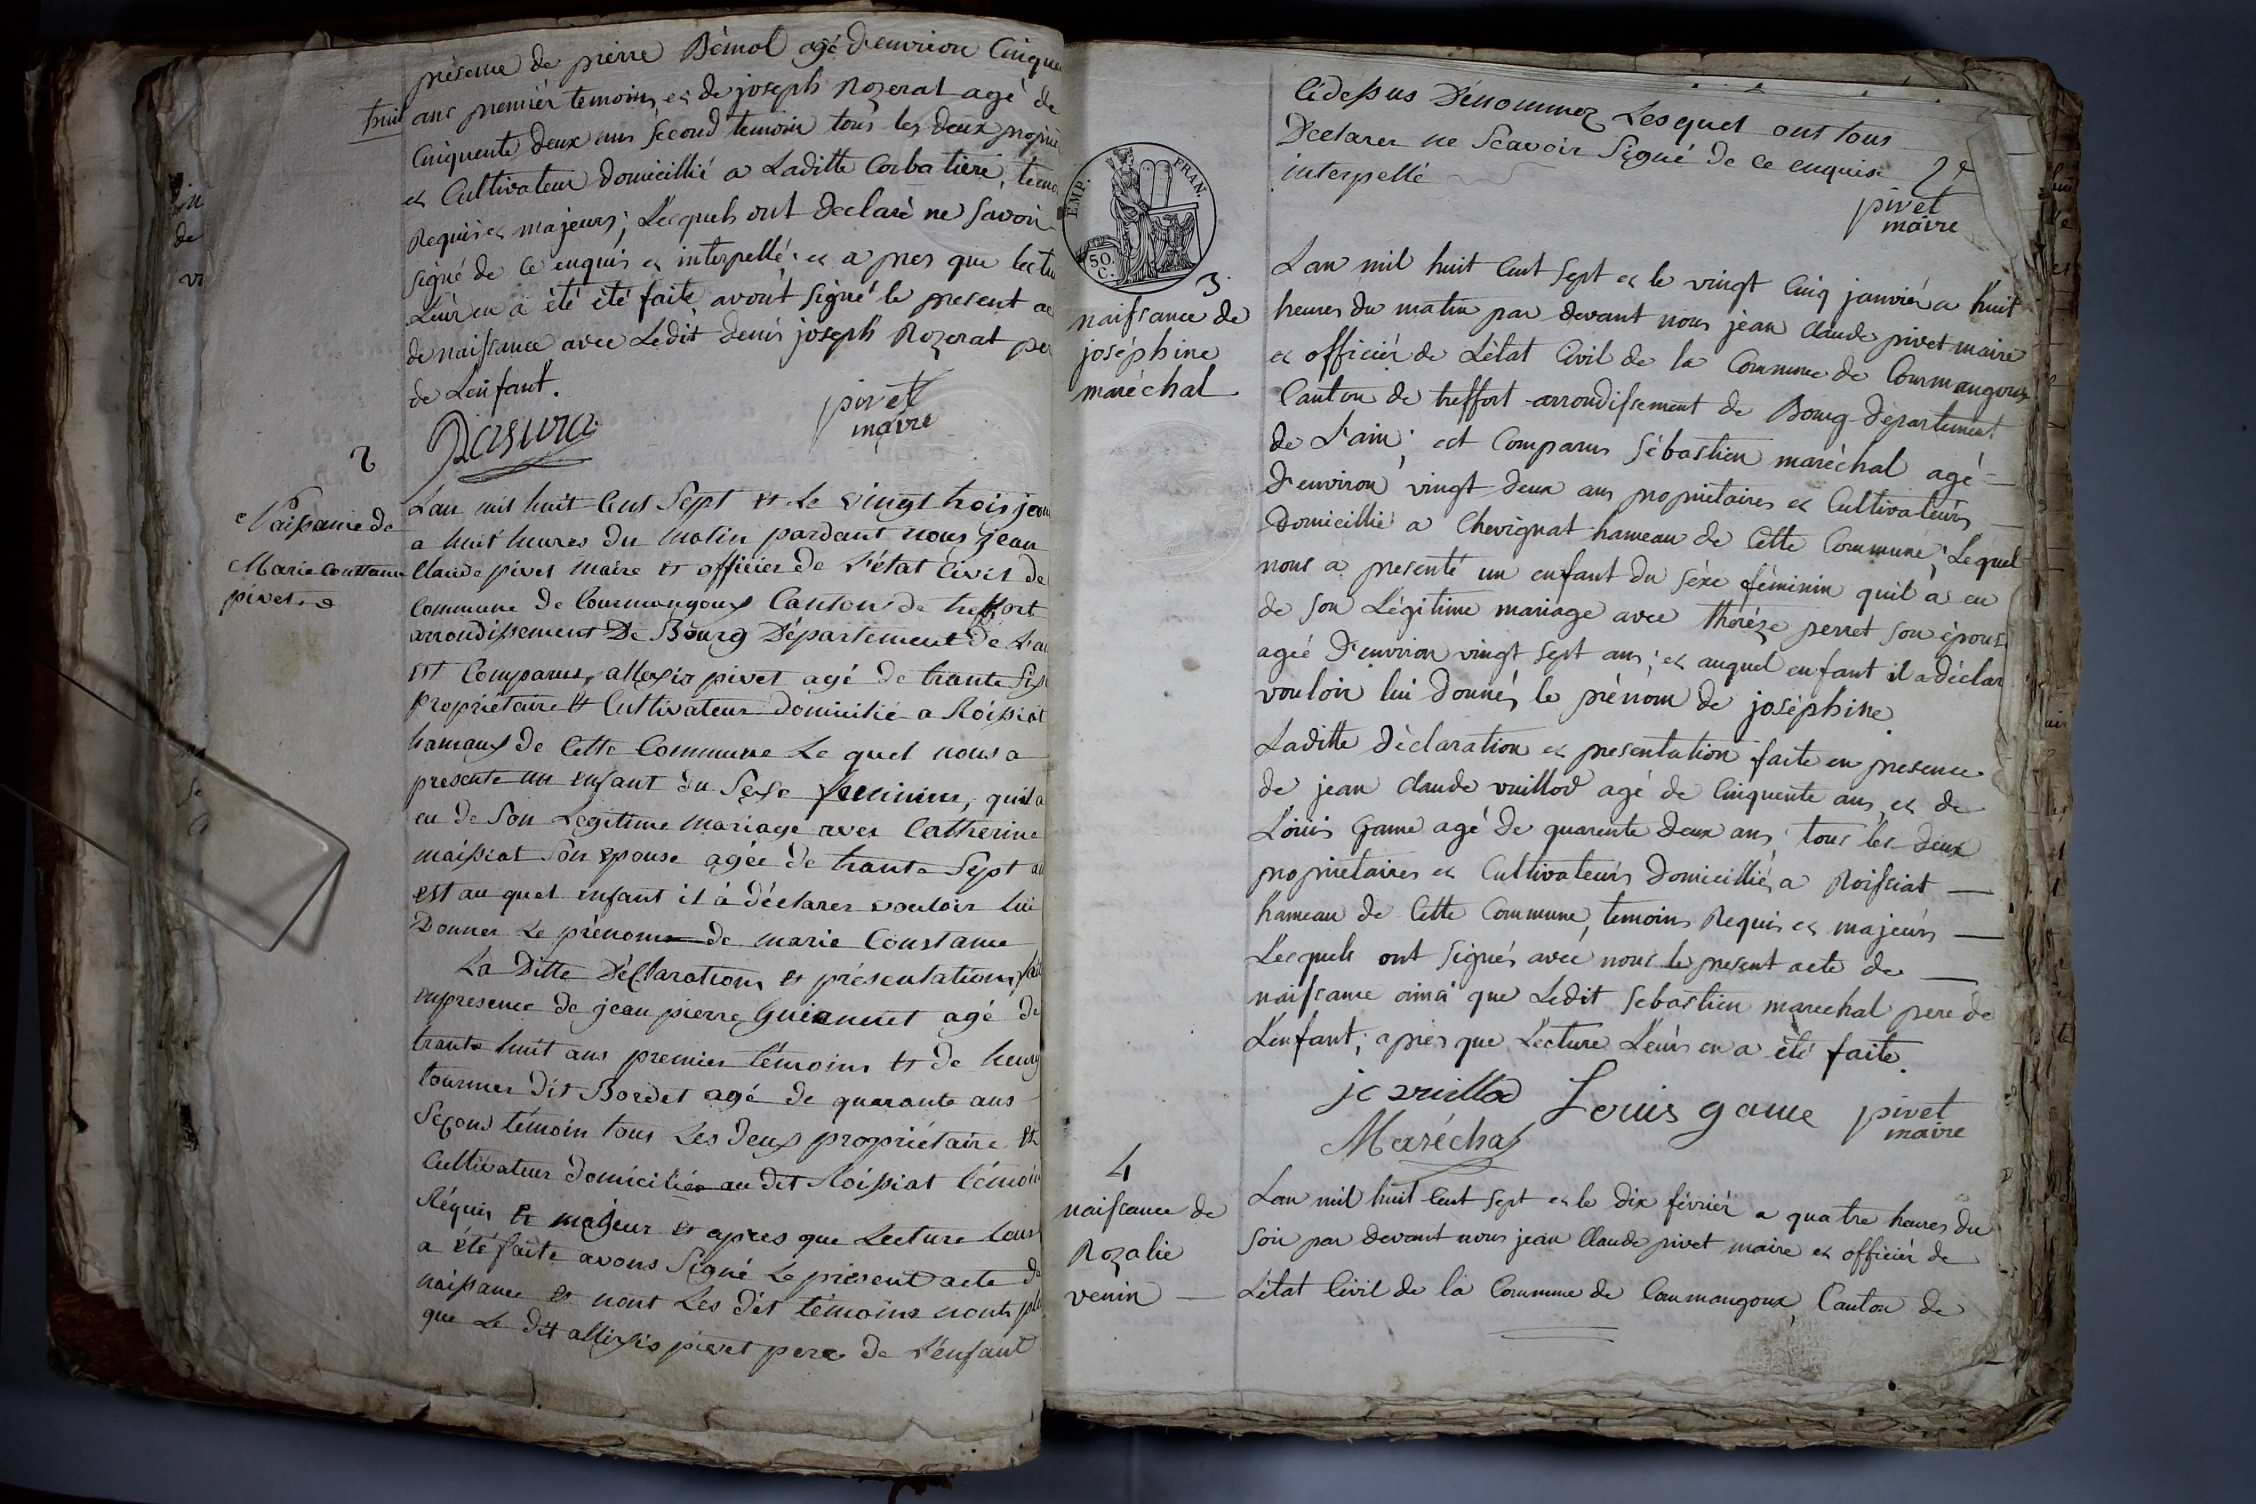 presence de pierre Bémol agé d'environ Cinque
huit ans premier temoin, et de joseph Rozerat agé de
Cinquente deux ans second temoin tous les deux proprie
et Cultivateur domicillié a Laditte Corbatiere, temo
Requis et majeurs; Lesquels ont declaré ne savoir
signé de ce enquis et interpellé. et a pres que lectu
Leur en a été été faite avont signé le present ac
de naissance avec Ledit Denis joseph Rozerat per
de Lenfant.
pivet
maire
Rasura
2
Naissance de
Marie Constance
pivet
Lan mil huit Cent Sept et Le vingt trois janv
a huit heures du matin pardevant nous jean
Claude pivet maire et officier de L'état Civil de
Commune de Courmangoux Canton de treffort
arrondissement De Bourg Département de L'ai
est Comparus, allexis pivet agé de trante Six
propriétaire et Cultivateur domicilié a Roissiat
hamaux de Cette Commune Le quel nous a
presente un enfant du Sexe feminim, quil a
eu de Son Legitime mariage avec Catherine
maissiat Son epouse agée de trante Sept an
est au quel enfant il à déclarer vouloir lui
Donner Le prénom de marie Constance
La Ditte Déclaration et présentation fait
en presence de jean pierre Guionnet agé de
trante huit ans premier témoins et de henry
tournier Dit Bordet agé de quarante ans
Segond témoin tous Les deux propriétaire et
Cultivateur domiciliés au dit Roissiat témoin
Réquis et majeur et apres que Lecture Leur
a été faite avons Signé Le présent acte de
naissance et nont Les dit témoins nont plu
que Le dit allexis pivet pere de L'enfant
Cidessus Dénommez Lesquel ont tous
Declarer ne Scavoir Signé de ce enquis et
interpellé
pivet
maire
EMP. FRAN.
50.
C.
3.
naissance de
joséphine
maréchal
Lan mil huit Cent sept et le vingt Cinq janvier a huit
heures du matin par devant nous jean Claude pivet maire
et officier de L'état Civil de la Commune de Courmangoux
Canton de treffort arrondissement de Bourg département
de L'ain; est Comparus Sébastien maréchal agé
d'environ vingt deux ans propriétaires et Cultivateurs
domicillié a Chevignat hameau de Cette Commune; Lequel
nous a presenté un enfant du séxe féminin quil a eu
de son Légitime mariage avec théréze perret son épous
ageé d'environ vingt sept ans; et auquel enfant il a déclar
vouloir lui donnés le prénom de joséphine.
Laditte déclaration et presentation faite en presence
de jean Claude vuillod agé de Cinquente ans, et de
Louis Game agé de quarente deux ans tous les deux
proprietaires et Cultivateurs domicilliés a Roissiat
hameau de Cette Commune, temoins Requis et majeurs
Lesquels ont signés avec nous le present acte de
naissance ainsi que Ledit sebastien marechal pere de
L'enfant; après que Lecture Leurs en a été faite.
jc vuillod Louis game pivet
maire
Maréchal
4
naissance de
Rozalie
venin
Lan mil huit Cent sept et le dix février a quatre heures du
soir par devant nous jean Claude pivet maire et officier de
L'état Civil de la Commune de Courmangoux, Canton de